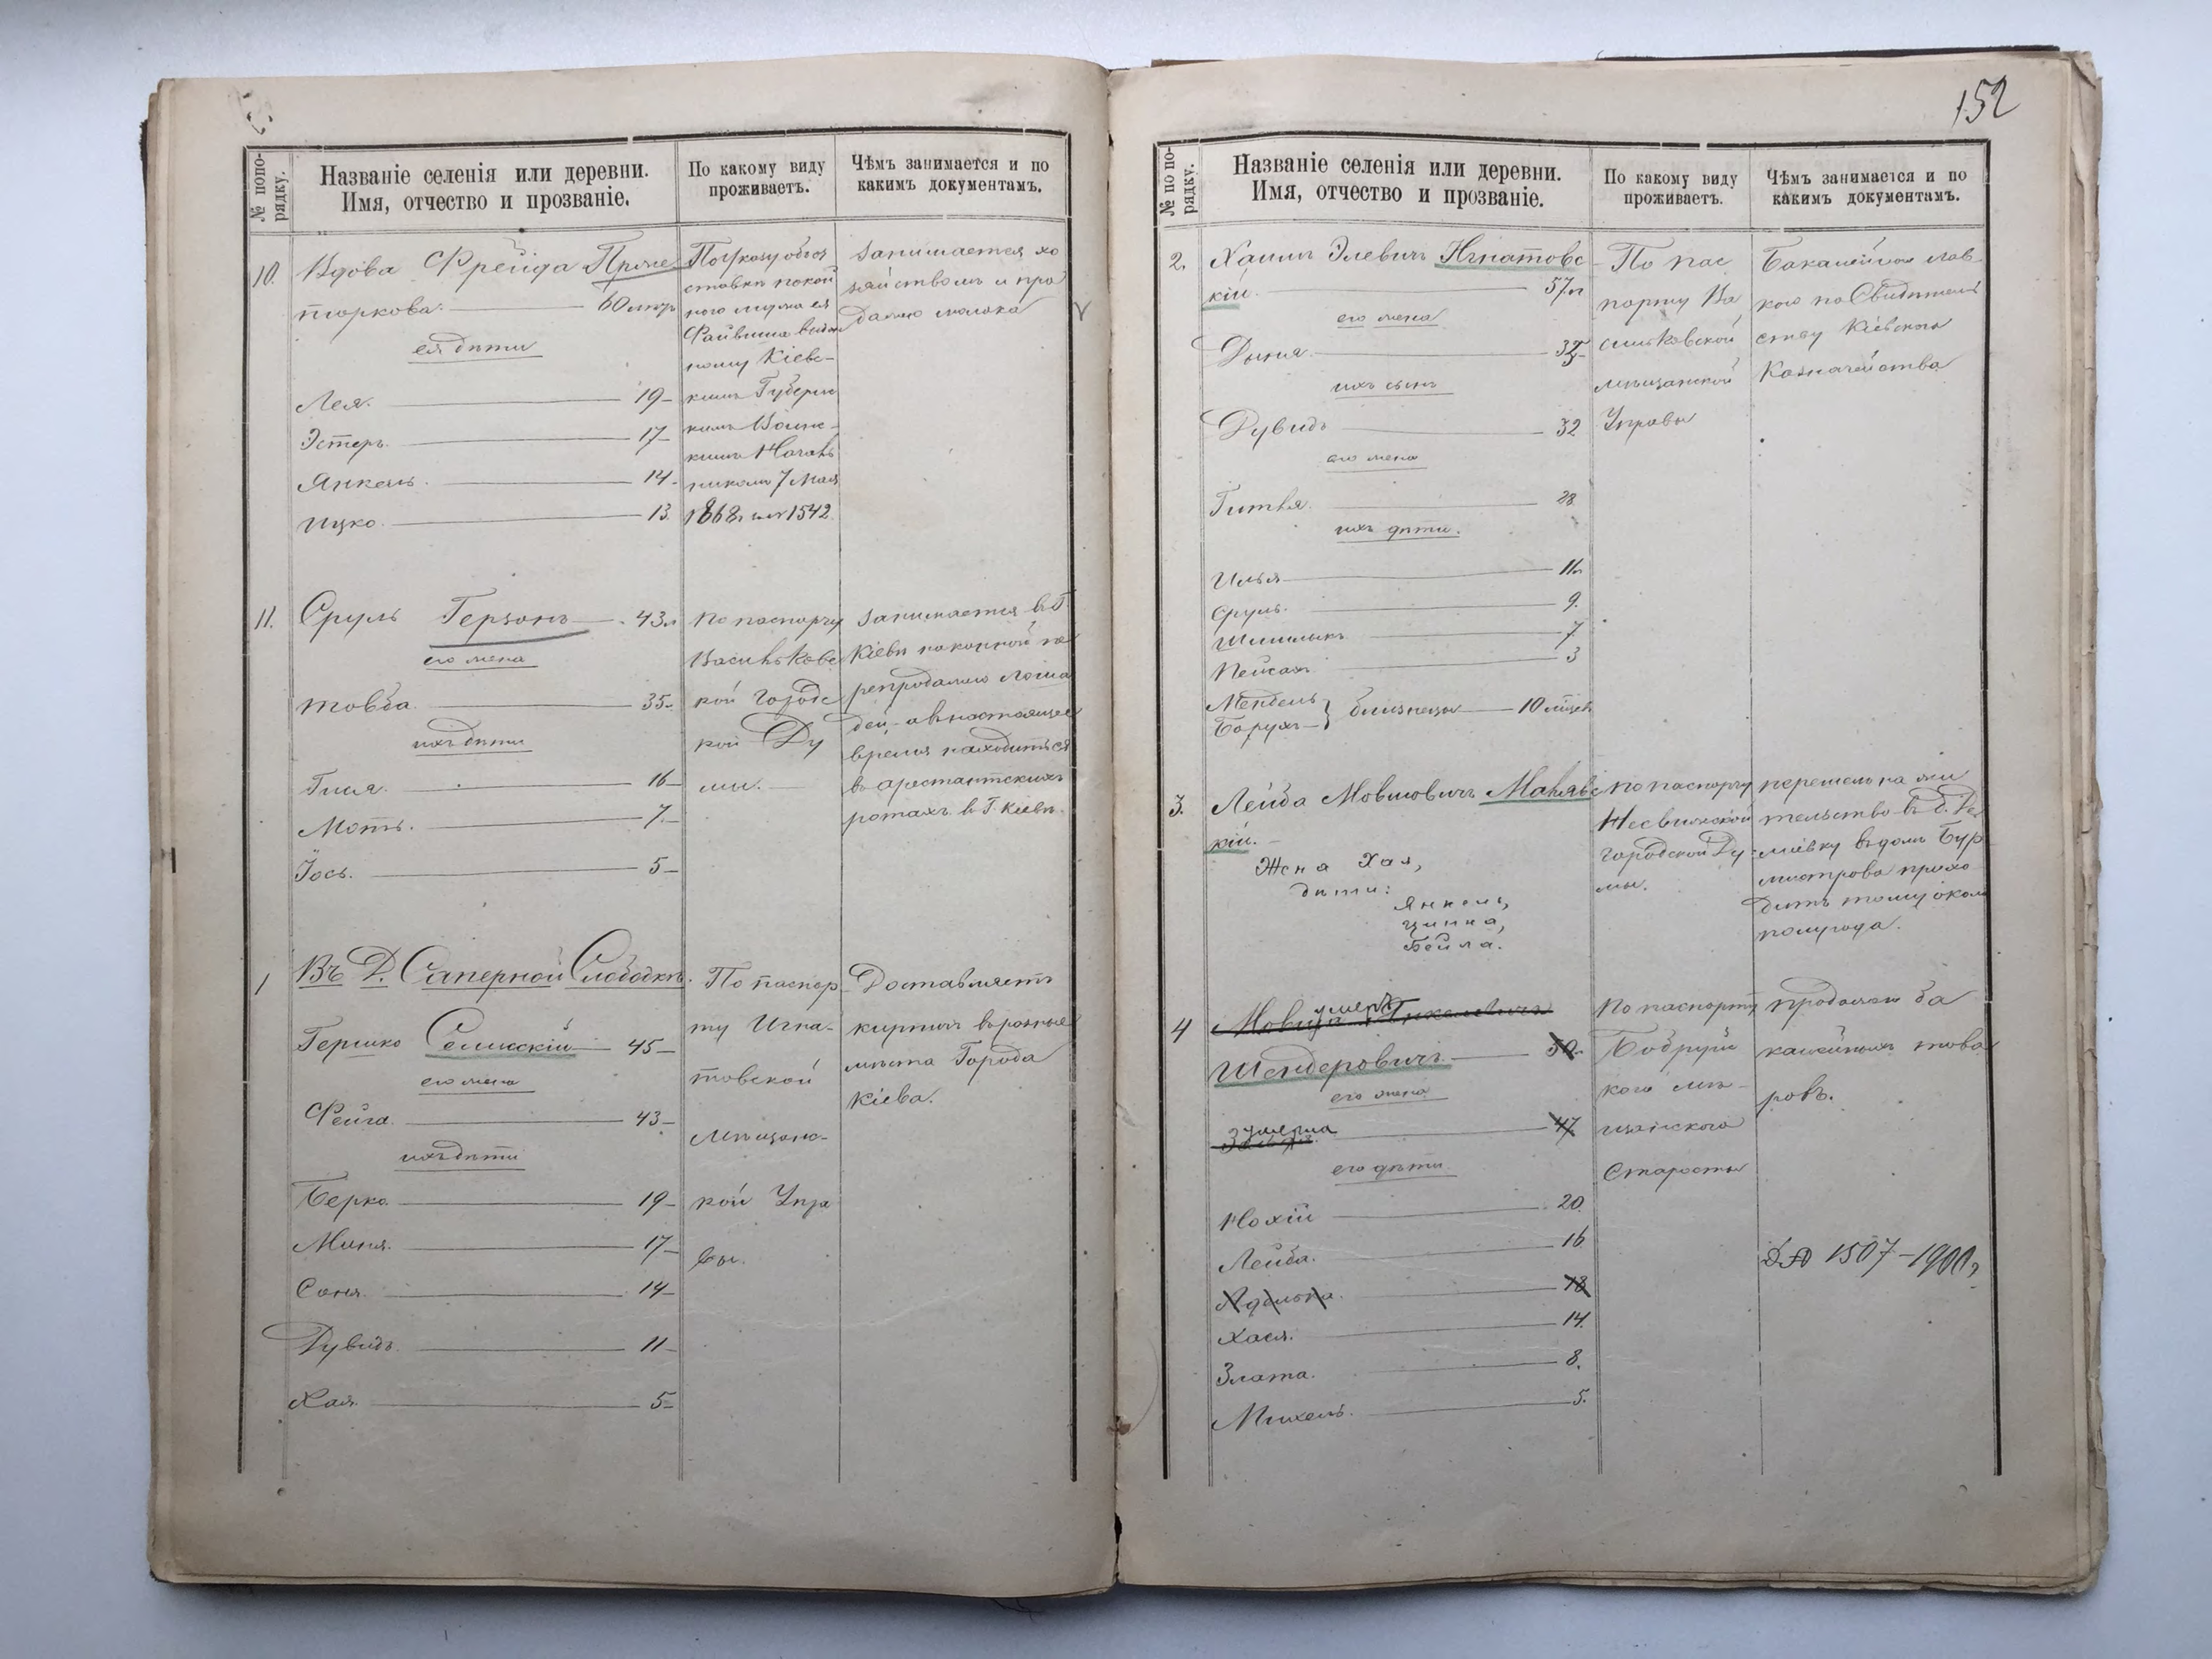 152
№ по по-
рядку.
Названіе селенія или деревни.
Имя, отчество и прозваніе.
По какому виду
проживаетъ.
Чѣмъ занимается и по
какимъ документамъ.
10.
Вдова Фрейда Пряте
торкова. 60 летъ
ея дѣти
Лея. 19
Эстеръ. 17
Янкель. 14
Ицко. 13
По указу объ от
ставкѣ покой
наго мужа ея
Файвиша выдан
ному Кіевс-
кимъ Губернс
кимъ Воинс-
кимъ Началь
никомъ 7 Мая
1868 г. за № 1542
Занимается хо
зяйствомъ и про
дажею молока
11.
Сруль Герзонъ 43 л
его жена
Товба 35
ихъ дѣти
Гиля. 16
Мотъ. 7
Іось. 5
По паспорту
Васильковс
кой Городс
кой Ду
мы.
Занимается въ Г.
Кіевѣ покопкой пе
репродажею Лоша
дей, а въ настоящее
время находиться
въ арестантскихъ
ротахъ въ Г. Кіевѣ.
1
Въ Д. Саперной Слободкѣ.
Гершко Селисскій 45
его жена
Фейга. 43
ихъ дѣти
Берко. 19
Миня. 17
Соня. 14
Дувидъ. 11
Хая. 5
По паспор
ту Игна-
товской
Мѣщанс-
кой Упра
вы.
Доставляетъ
кирпичъ въ разные
мѣста Города
Кіева.
№ по по-
рядку.
Названіе селенія или деревни.
Имя, отчество и прозваніе.
По какому виду
проживаетъ.
Чѣмъ занимается и по
какимъ документамъ.
2.
Хаимъ Элевичъ Игнатовс
кій. 57 л
его жена
Дыня.
ихъ сынъ
Дувидъ 32
его жена
Гитля. 28
ихъ дѣти.
Илья 11 л
Сруль. 9.
Шлиомыкъ 7
Пейсахъ 3
Мендель
Борухъ } близнецы 10 мѣсец
По пас
порту Ва
сильковской
мѣщанской
Управы
Бакалейная лав
кою по Свидѣтель
ству Кіевскаго
Казначейства
3.
Лейба Мовшовичъ Манявс
кій.
Жена Хая,
дѣти:
Янкель,
Ципка,
Бейла.
По паспорту
Несвижской
городской Ду
мы.
перешелъ на жи
тельство въ д. Де
міевку въ домъ Бур
мистрова прихо
дитъ тому около
полугода.
4
умеръ
Мовша
Шендеровичъ. 50
его жена
умерла
47
его дѣти
Нохім 20.
Лейба. 16
Адэлька. 18
Хася. 14.
Злата. 8.
Михель. 5.
По паспорту
Бобруйс
каго мѣ-
щанского
Старосты
продажею ба
калейныхъ това
ровъ.
1507-1900 г